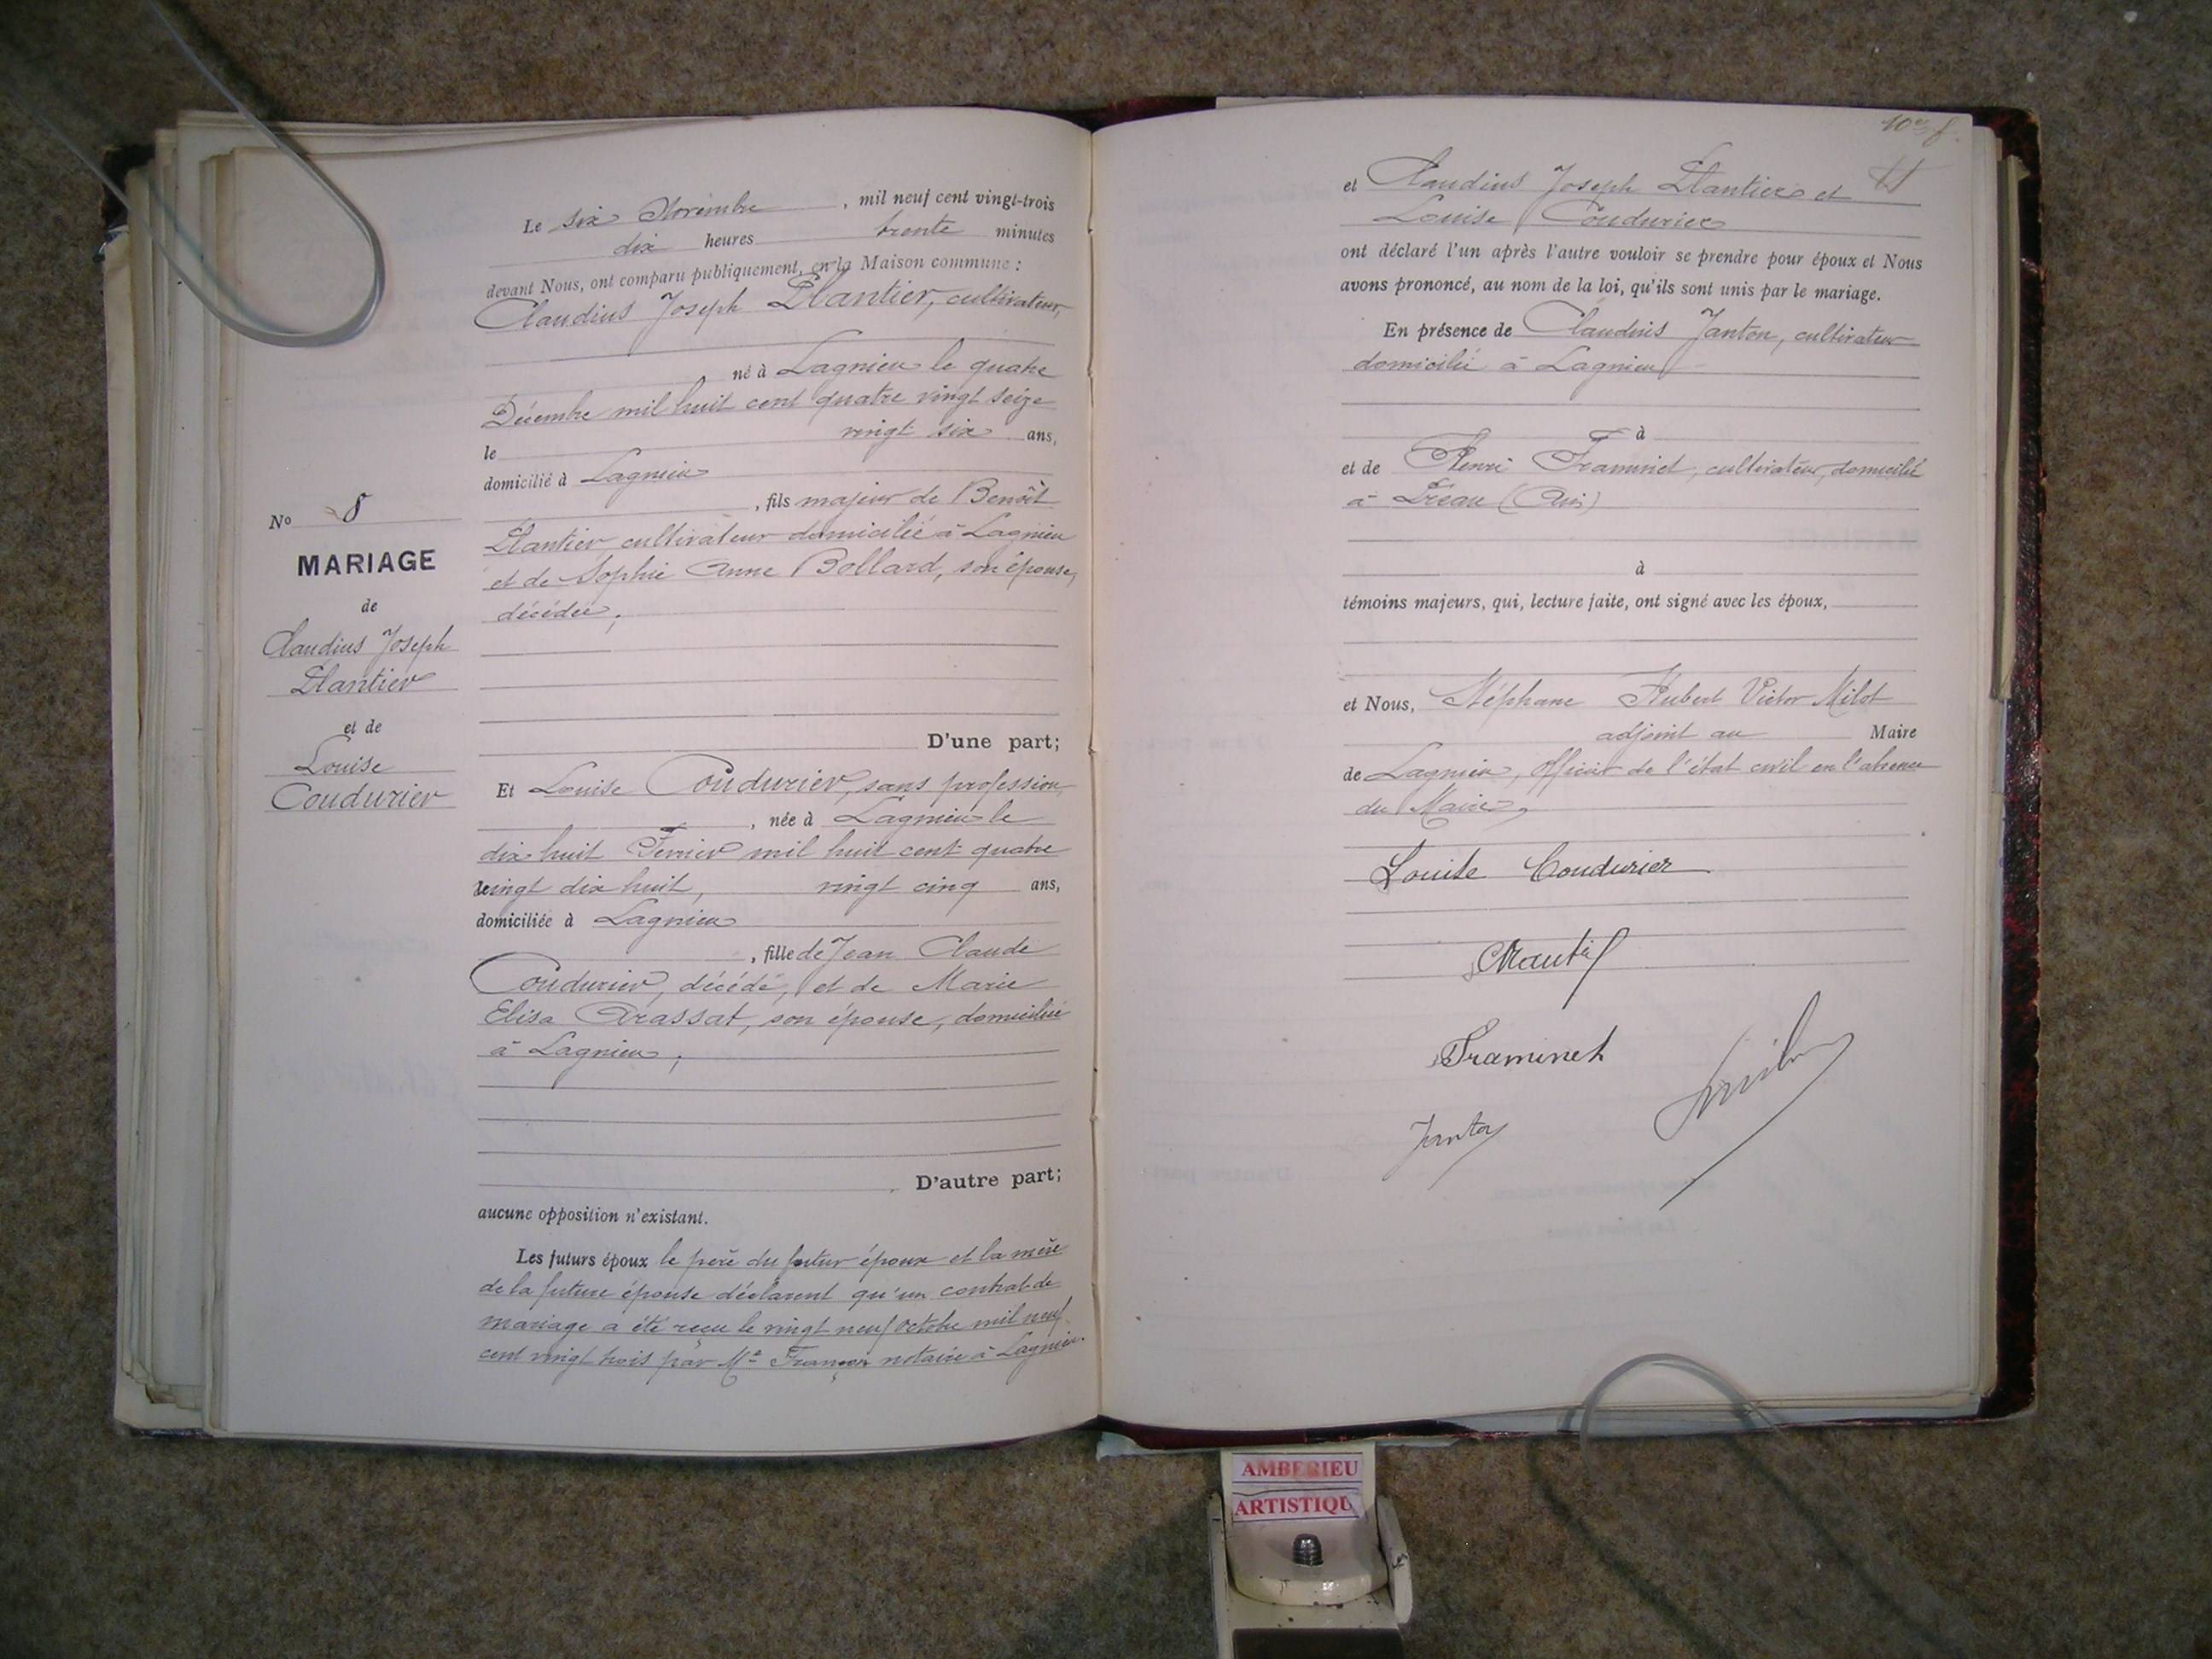 Le six Novembre, mil neuf cent vingt-trois
dix heures trente minutes
devant Nous, ont comparu publiquement, en la Maison commune :
Claudius Joseph Plantier, cultivateur,
né à Lagnieu le quatre
Décembre mil huit cent quatre vingt seize
le vingt six ans,
domicilié à Lagnieu
, fils majeur de Benoît
Plantier cultivateur domicilié à Lagnieu
et de Sophie Anne Bollard, son épouse,
décédée;
D'une part;
Et Louise Coudurier, sans profession,
, née à Lagnieu le
dix huit Fevrier mil huit cent quatre
vingt dix huit, vingt cinq ans,
domiciliée à Lagnieu
, fille de Jean Claude
Coudurier, décédé, et de Marie
Elisa Drassat, son épouse, domiciliée
à Lagnieu;
D'autre part;
aucune opposition n'existant.
Les futurs époux le père du futur époux et la mère
de la future épouse déclarent qu'un contrat de
mariage a été reçu le vingt neuf octobre mil neuf
cent vingt trois par Me Françon notaire à Lagnieu
No 8
MARIAGE
de
Claudius Joseph
Plantier
et de
Louise
Coudurier
et Claudius Joseph Plantier et
Louise Coudurier
ont déclaré l'un après l'autre vouloir se prendre pour époux et Nous
avons prononcé, au nom de la loi, qu'ils sont unis par le mariage.
En présence de Claudius Janton, cultivateur
domicilié à Lagnieu
à
et de Henri Traminet, cultivateur, domicilié
à (Ain)
à
témoins majeurs, qui, lecture faite, ont signé avec les époux,
et Nous, Stéphane Hubert Victor Milot
adjoint au Maire
de Lagnieu, officier de l'état civil en l'absence
du Maire,
Louise Coudurier
Traminet
Janton
AMBERIEU
ARTISTIQU